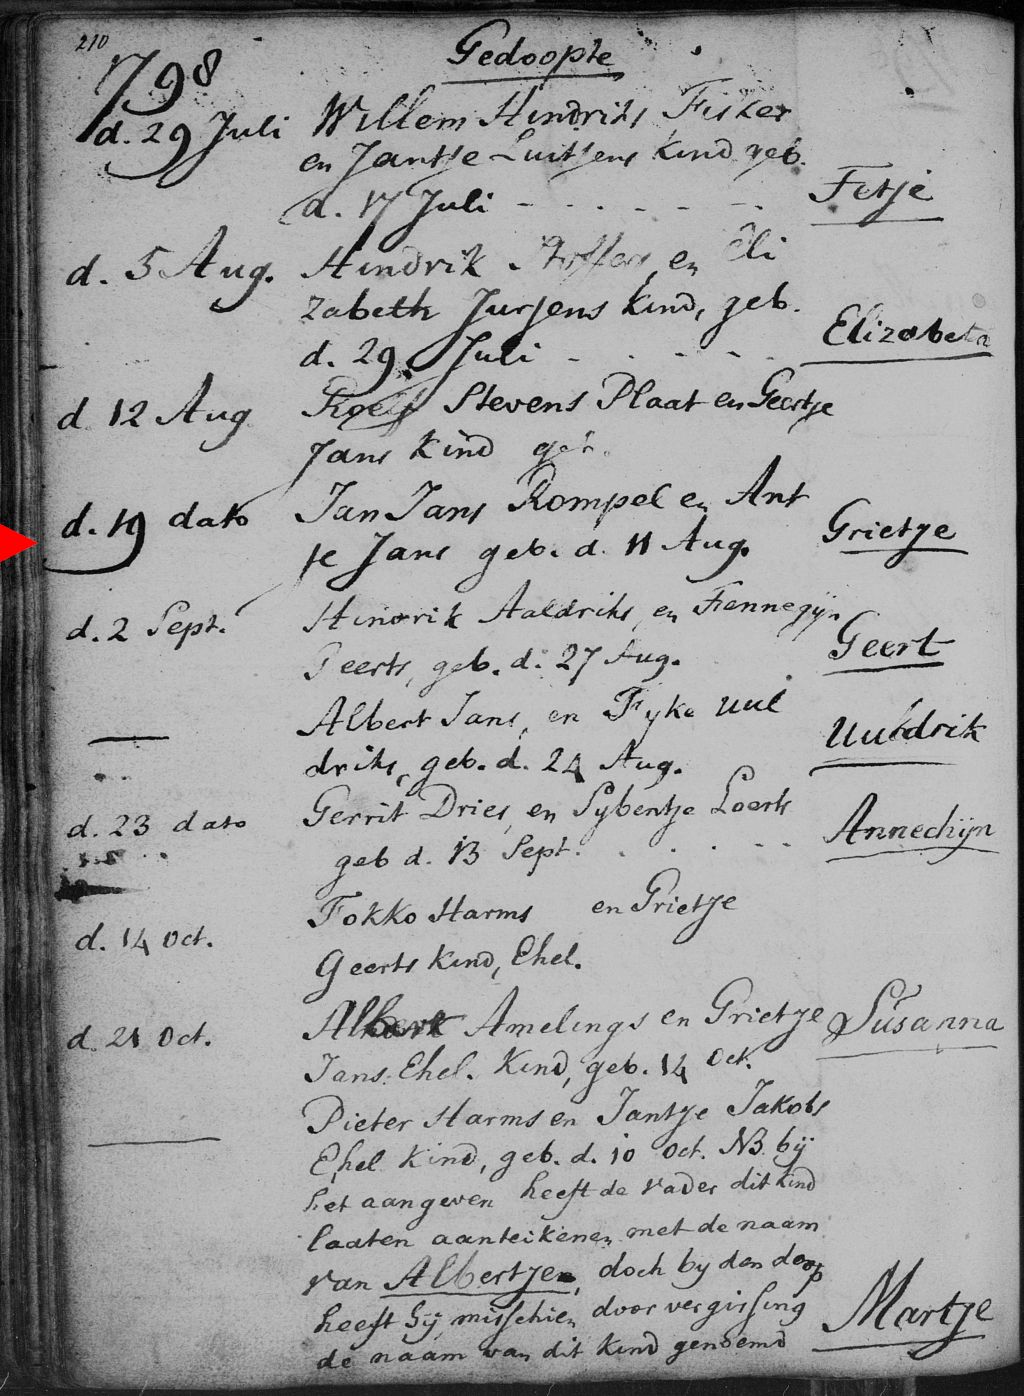 210
Gedoopte
1798
d. 29 Juli Willem Hindriks Fisker
en Jantje Luitjens kind geb.
d. 17 Juli - - - - - - Fetje
d. 5 Aug. Hindrik en Eli
zabeth Jurjens kind, geb.
d. 29 Juli - - - - - Elizabeth
d 12 Aug Roelf Stevens Plaat en Geertje
Jans kind geb.
d. 19 dato Jan Jans Rompel en Ant
je Jans geb. d. 11 Aug. Grietje
d. 2 Sept. Hindrik Aaldriks, en Fennegijn
Geerts, geb. d. 27 Aug. Geert
Albert Jans, en Fyke Uul
driks, geb. d. 24 Aug. Uuldrik
d. 23 dato Gerrit Dries, en Sybentje Loerts
geb d. 13 Sept. - - - - - Annechijn
d. 14 Oct. Fokko Harms en Grietje
Geerts kind, Ehel.
d 21 Oct. Albert Amelings en Grietje Susanna
Jans. Ehel. Kind, geb. 14 Oct.
Pieter Harms en Jantje Jakobs
Ehel kind, geb. d. 10 Oct. NB. bij
het aangeven heeft de vader dit kind
laaten aanteikenen met de naam
van Albertjen, doch by den doop
heeft hij misschien door vergissing
de naam van dit kind genoemd Martje